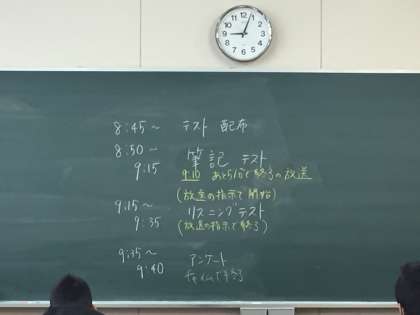 8:45～ テスト 配布
8:50～
9:15 筆記 テスト
9:10 あと5分で終了の放送
(放送の指示で開始)
9:15～ リスニングテスト
9:35 (放送の指示で終了)
9:35～ アンケート
9:40 チャイムで終了